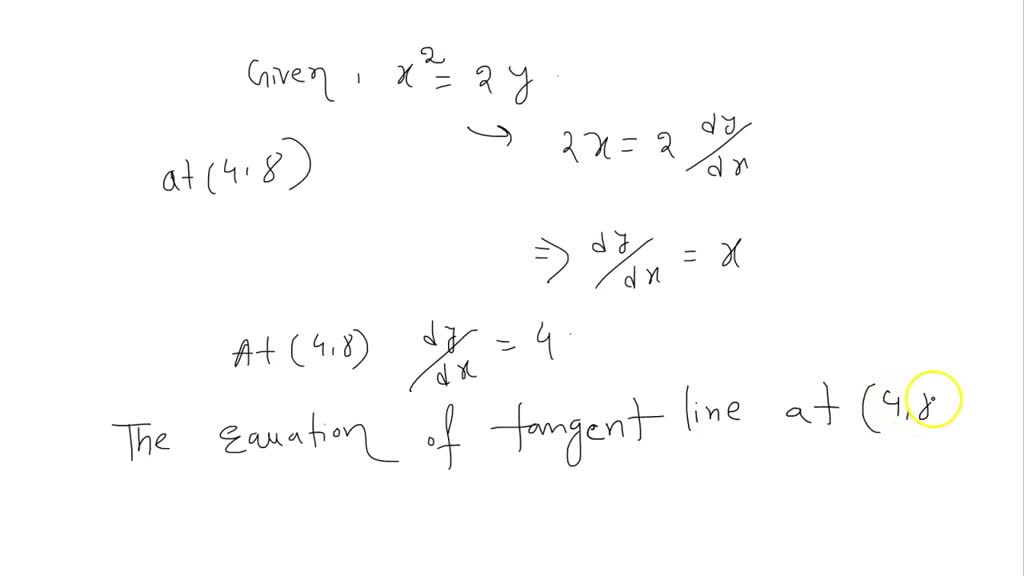 Given, x² = 2y
at (4,8)
→ 2x = 2 dy/dx
⇒ dy/dx = x
At (4,8) dy/dx = 4
The Equation of tangent line at (4,8